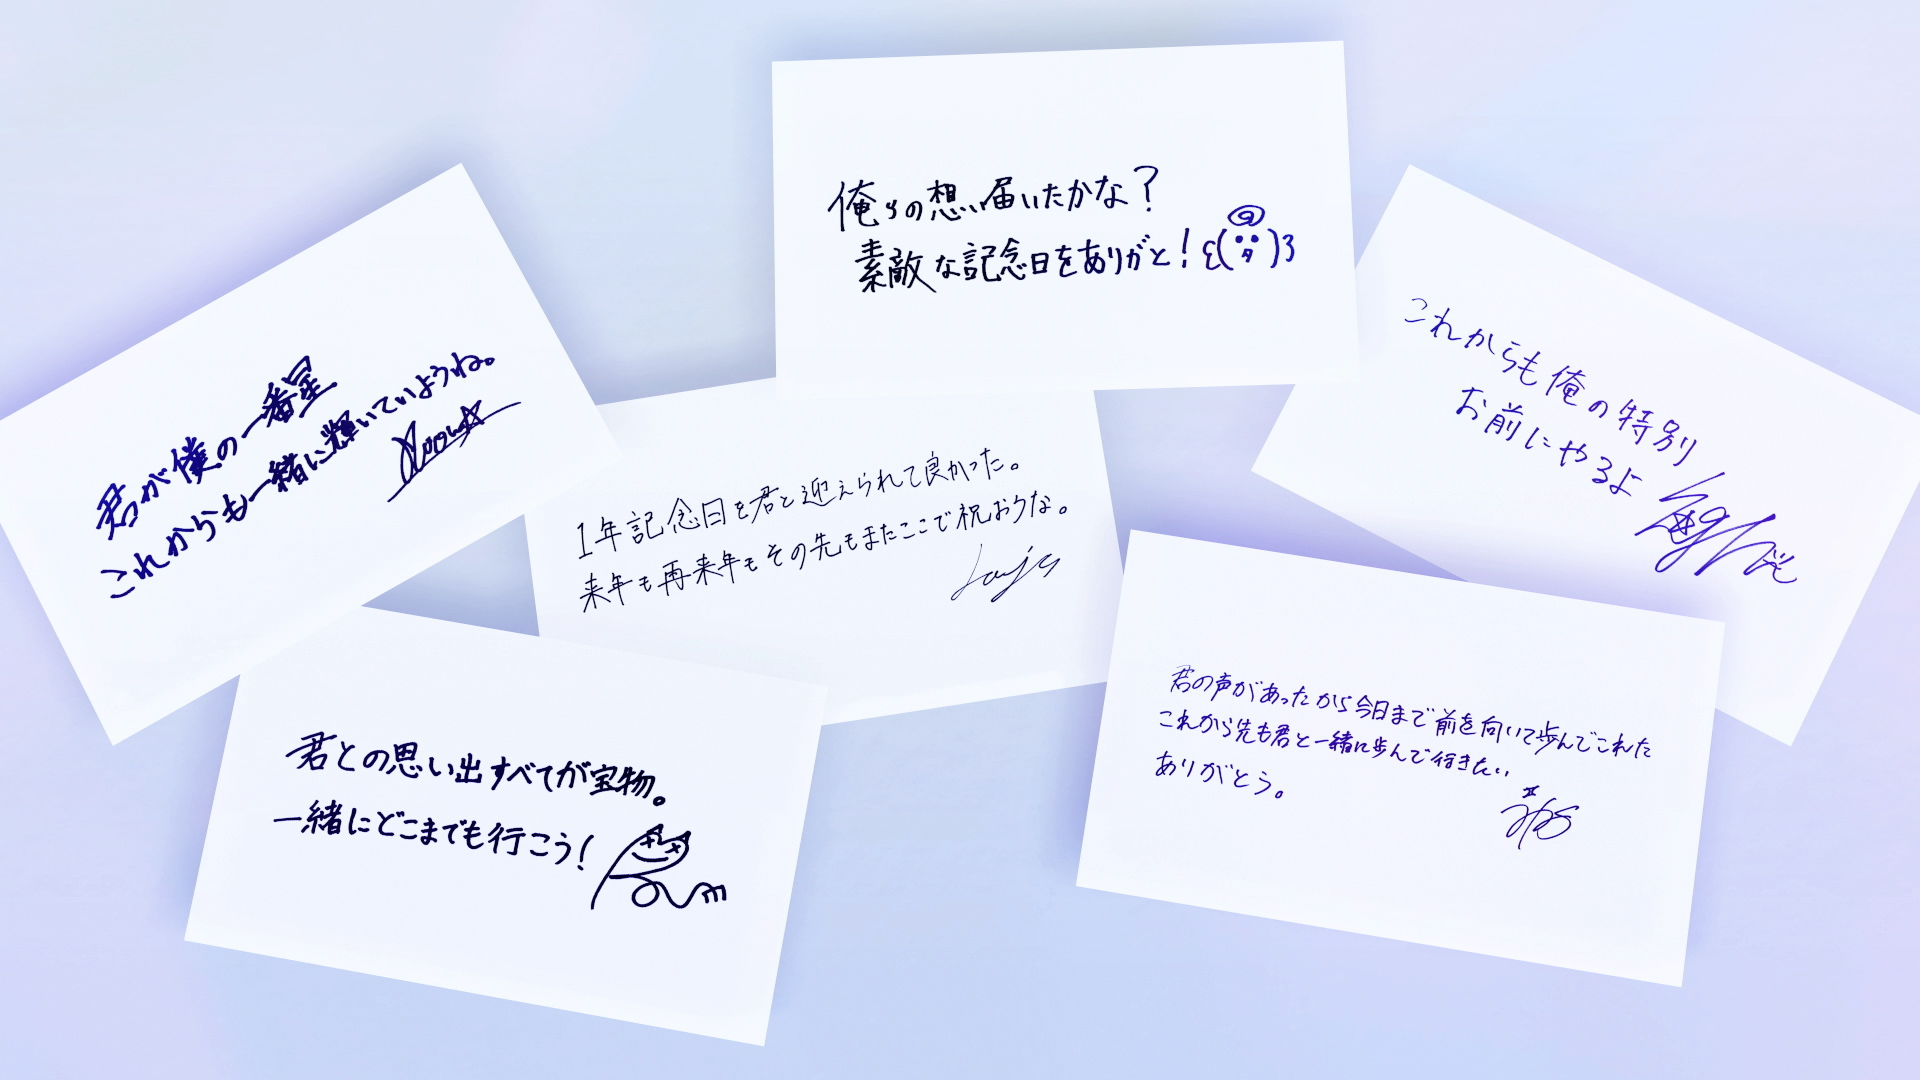 俺らの想い届いたかな？
素敵な記念日をありがと！
君が僕の一番星
これからも一緒に輝いていようね。
1年記念日を君と迎えられて良かった。
来年も再来年もその先もまたここで祝おうな。
これからも俺の特別
お前にやるよ
君との思い出すべてが宝物。
一緒にどこまでも行こう！
君の声があったから今日まで前を向いて歩んでこれた
これから先も君と一緒に歩んで行きたい
ありがとう。